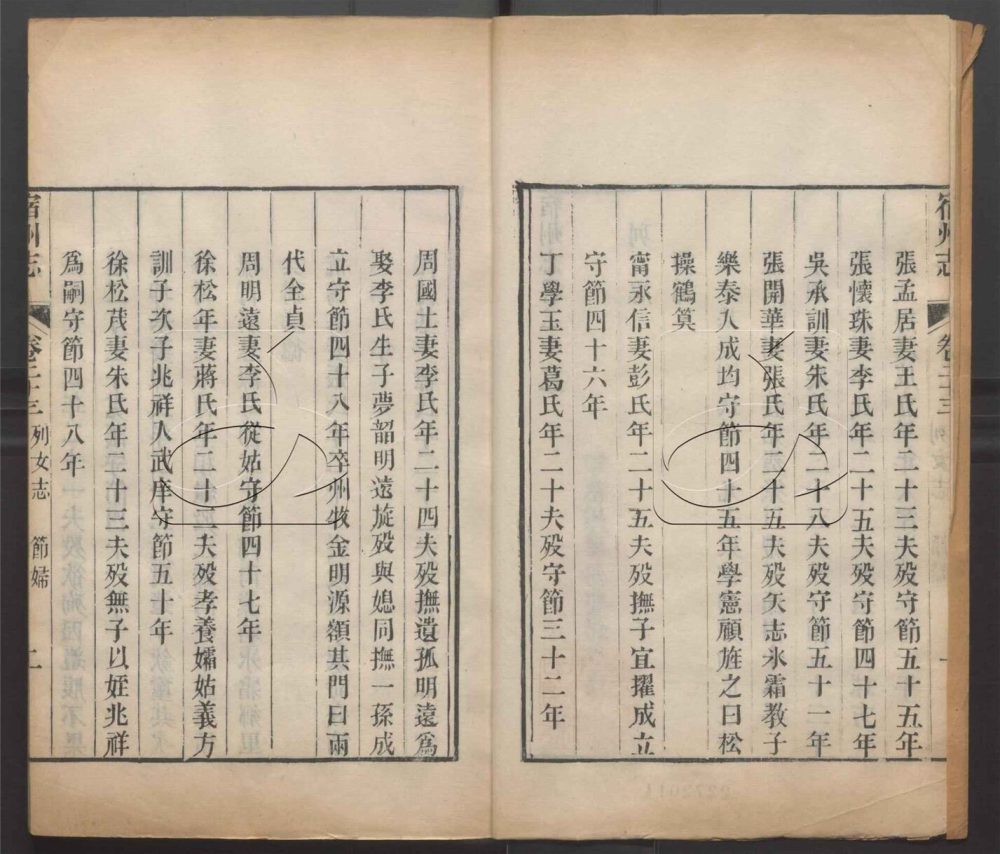 宿州志 卷二十三 列女志
張孟居妻王氏年二十三夫歿守節五十五年
張懷珠妻李氏年二十五夫歿守節四十七年
吳承訓妻朱氏年二十八夫歿守節五十一年
張開華妻張氏年二十五夫歿矢志氷霜教子
樂泰入成均守節四十五年學憲顧旌之曰松
操鶴筭
甯永信妻彭氏年二十五夫歿撫子宜擢成立
守節四十六年
丁學玉妻葛氏年二十夫歿守節三十二年
周國士妻李氏年二十四夫歿撫遺孤明遠爲
娶李氏生子夢韶明遠旋歿與媳同撫一孫成
立守節四十八年卒州牧金明源額其門曰兩
代全貞
周明遠妻李氏從姑守節四十七年
徐松年妻蔣氏年二十四夫歿孝養孀姑義方
訓子次子兆祥入武庠守節五十年
徐松茂妻朱氏年二十三夫歿無子以姪兆祥
爲嗣守節四十八年
宿州志 卷二十三 列女志 節婦 二